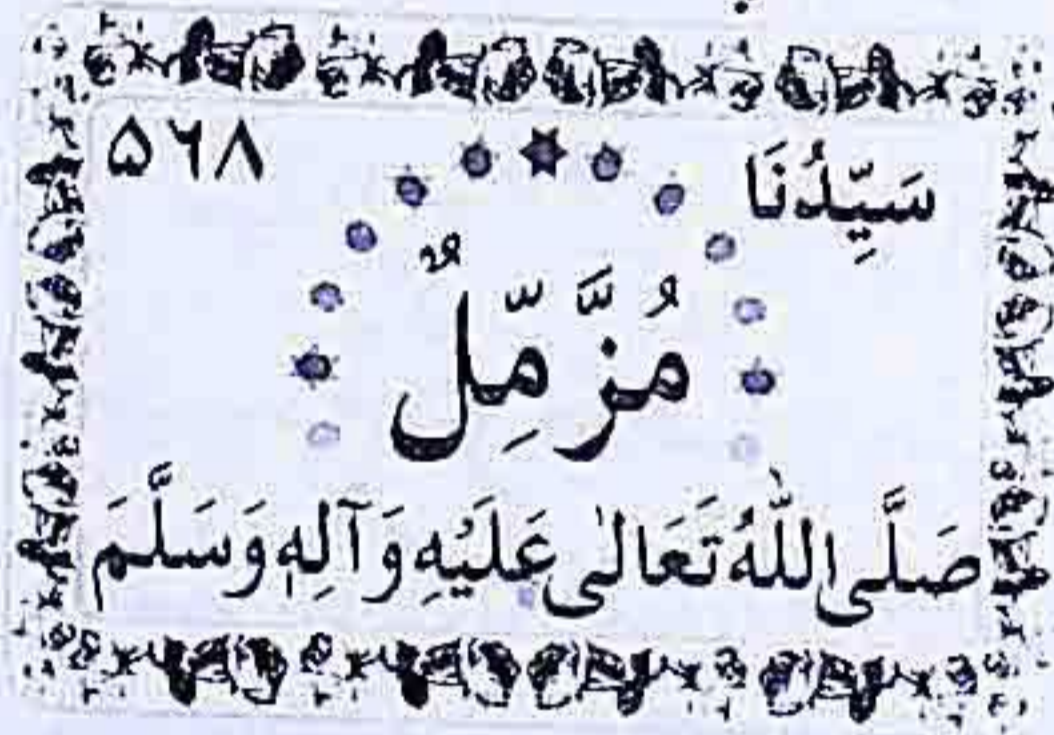 سَيِّدُنَا ۵۶۸
مُزَّمِّلٌ
صَلَّى اللّٰهُ تَعَالٰى عَلَيْهِ وَآلِهٖ وَسَلَّمَ